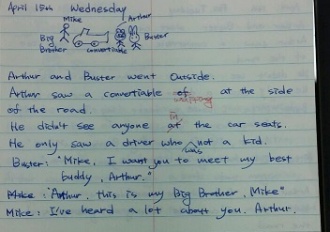 April 15th Wednesday
Mike Arthur
Big Brother convertiable Buster
Arthur and Buster went Outside.
Arthur saw a convertiable of at the side
of the road.
He didn't see anyone at in the car seats.
He only saw a driver who was not a kid.
Buster: "Mike, I want you to meet my best
buddy, Arthur."
Mike: "Arthur, this is my Big Brother, Mike"
Mike: I've heard a lot about you, Arthur.